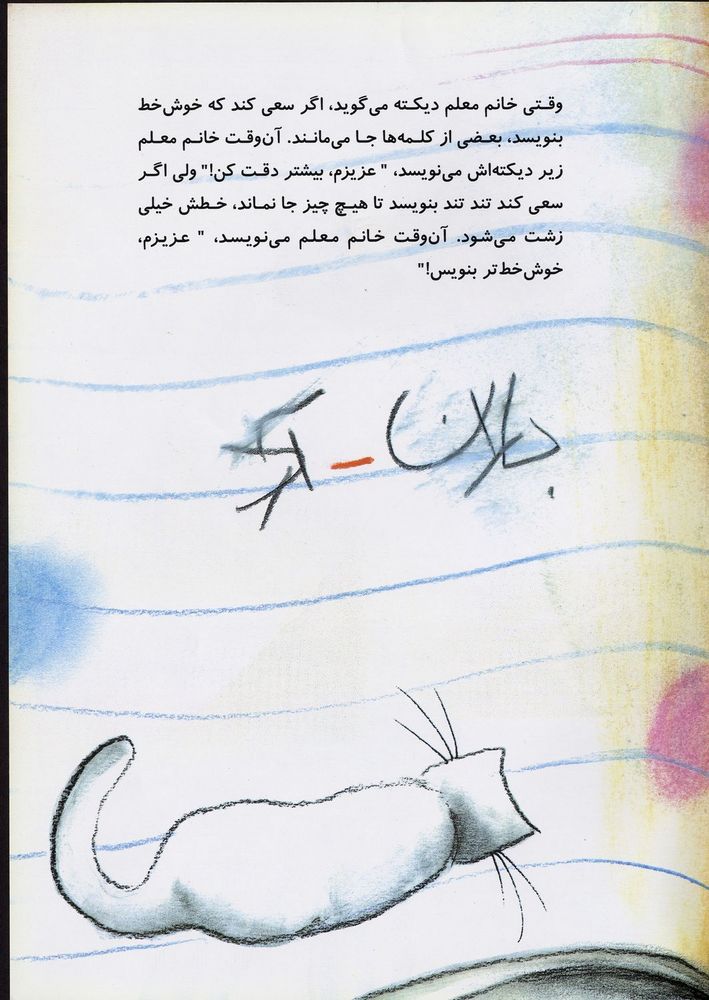 وقتی خانم معلم دیکته می‌گوید، اگر سعی کند که خوش‌خط
بنویسد، بعضی از کلمه‌ها جا می‌مانند. آن‌وقت خانم معلم
زیر دیکته‌اش می‌نویسد، " عزیزم، بیشتر دقت کن!" ولی اگر
سعی کند تند تند بنویسد تا هیچ چیز جا نماند، خطش خیلی
زشت می‌شود. آن‌وقت خانم معلم می‌نویسد، " عزیزم،
خوش‌خط‌تر بنویس!"
باران -